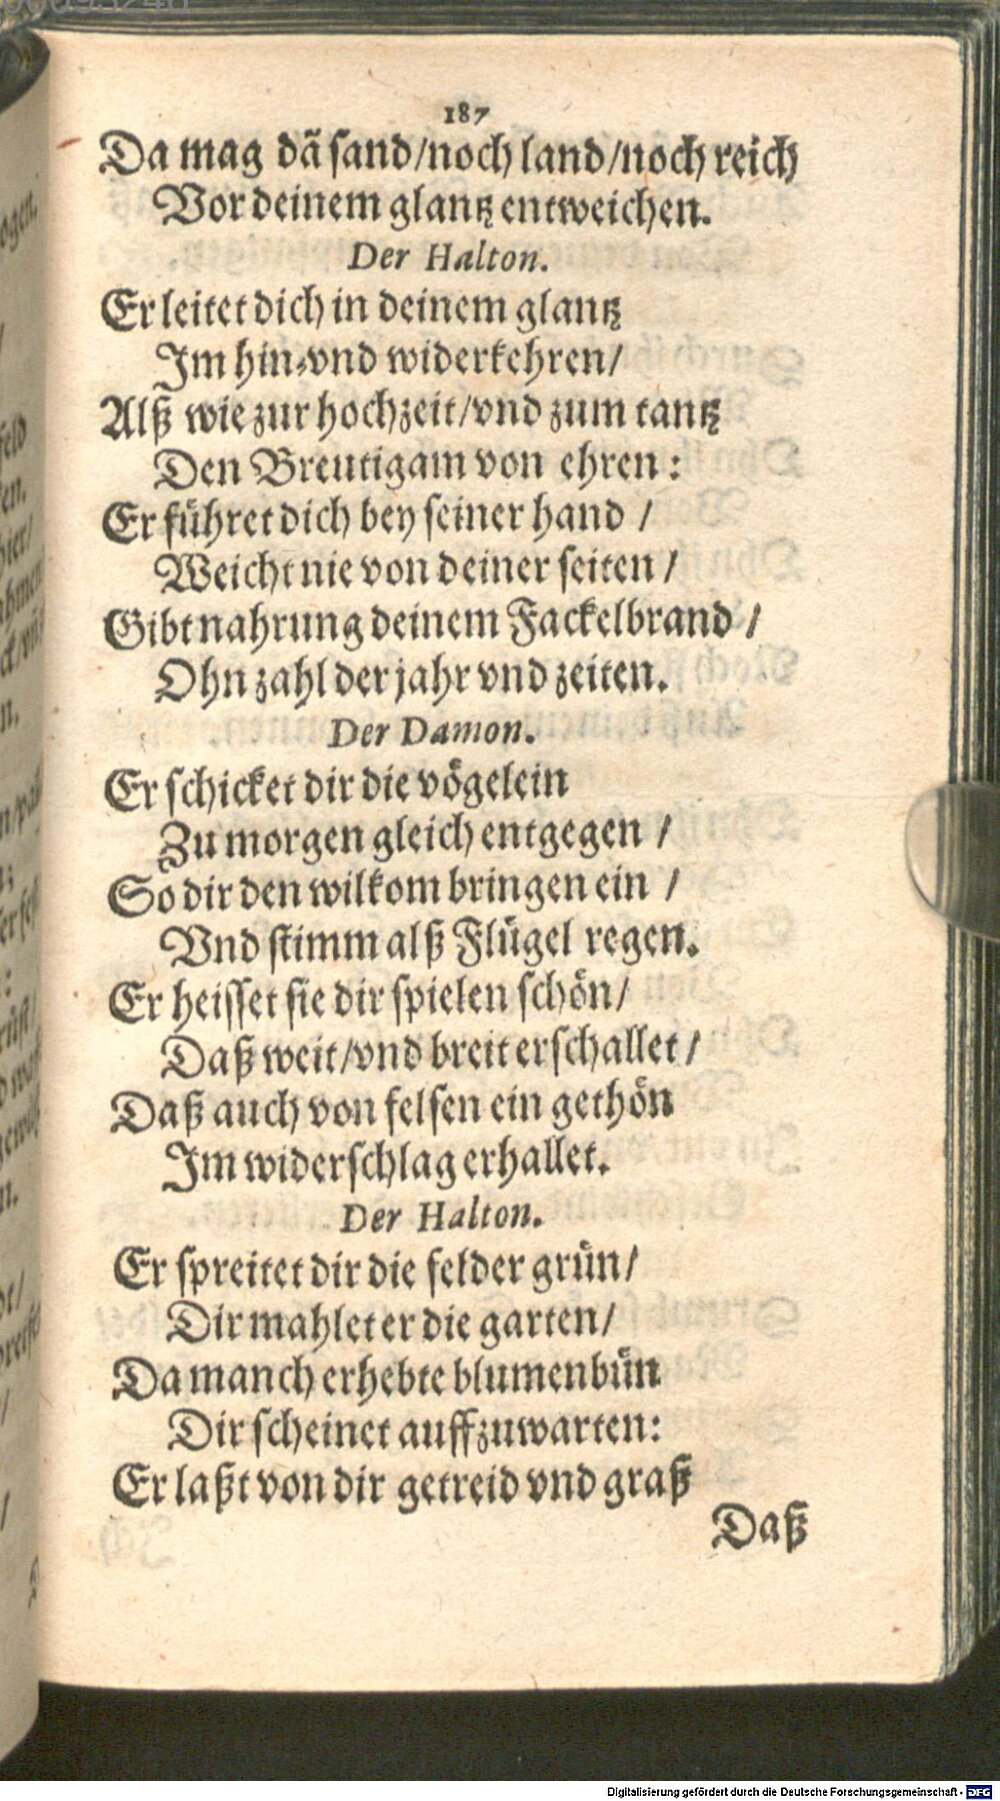 187
Da mag dã sand/noch land/noch reich
Vor deinem glantz entweichen.
Der Halton.
Er leitet dich in deinem glantz
Im hin-vnd widerkehren/
Alß wie zur hochzeit/vnd zum tantz
Den Breutigam von ehren:
Er führet dich bey seiner hand /
Weicht nie von deiner seiten /
Gibt nahrung deinem Fackelbrand /
Ohn zahl der jahr vnd zeiten.
Der Damon.
Er schicket dir die vögelein
Zu morgen gleich entgegen /
So dir den wilkom bringen ein /
Vnd stimm alß Flügel regen.
Er heisset sie dir spielen schön/
Daß weit/vnd breit erschallet /
Daß auch von felsen ein gethön
Im widerschlag erhallet.
Der Halton.
Er spreitet dir die felder grün/
Dir mahlet er die garten/
Da manch erhebte blumenbün
Dir scheinet auffzuwarten:
Er laßt von dir getreid vnd graß
Daß
Digitalisierung gefördert durch die Deutsche Forschungsgemeinschaft - DFG